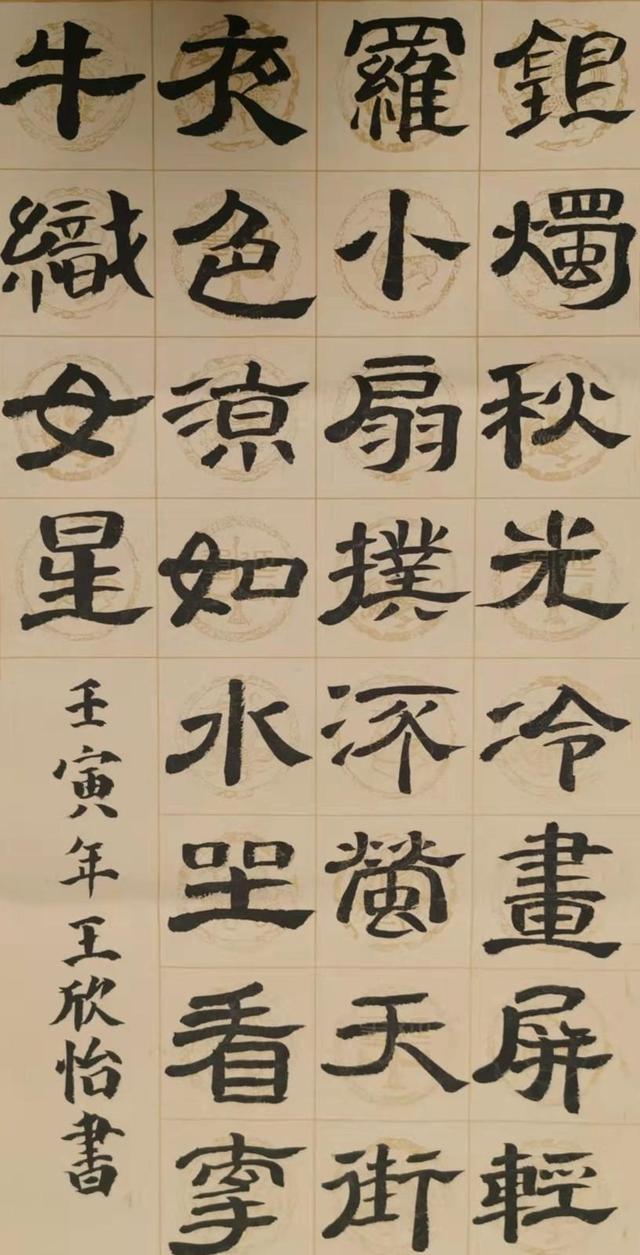 銀燭秋光冷畫屏輕
羅小扇撲流螢天街
夜色涼如水坐看牽
牛織女星
壬寅年王欣怡書